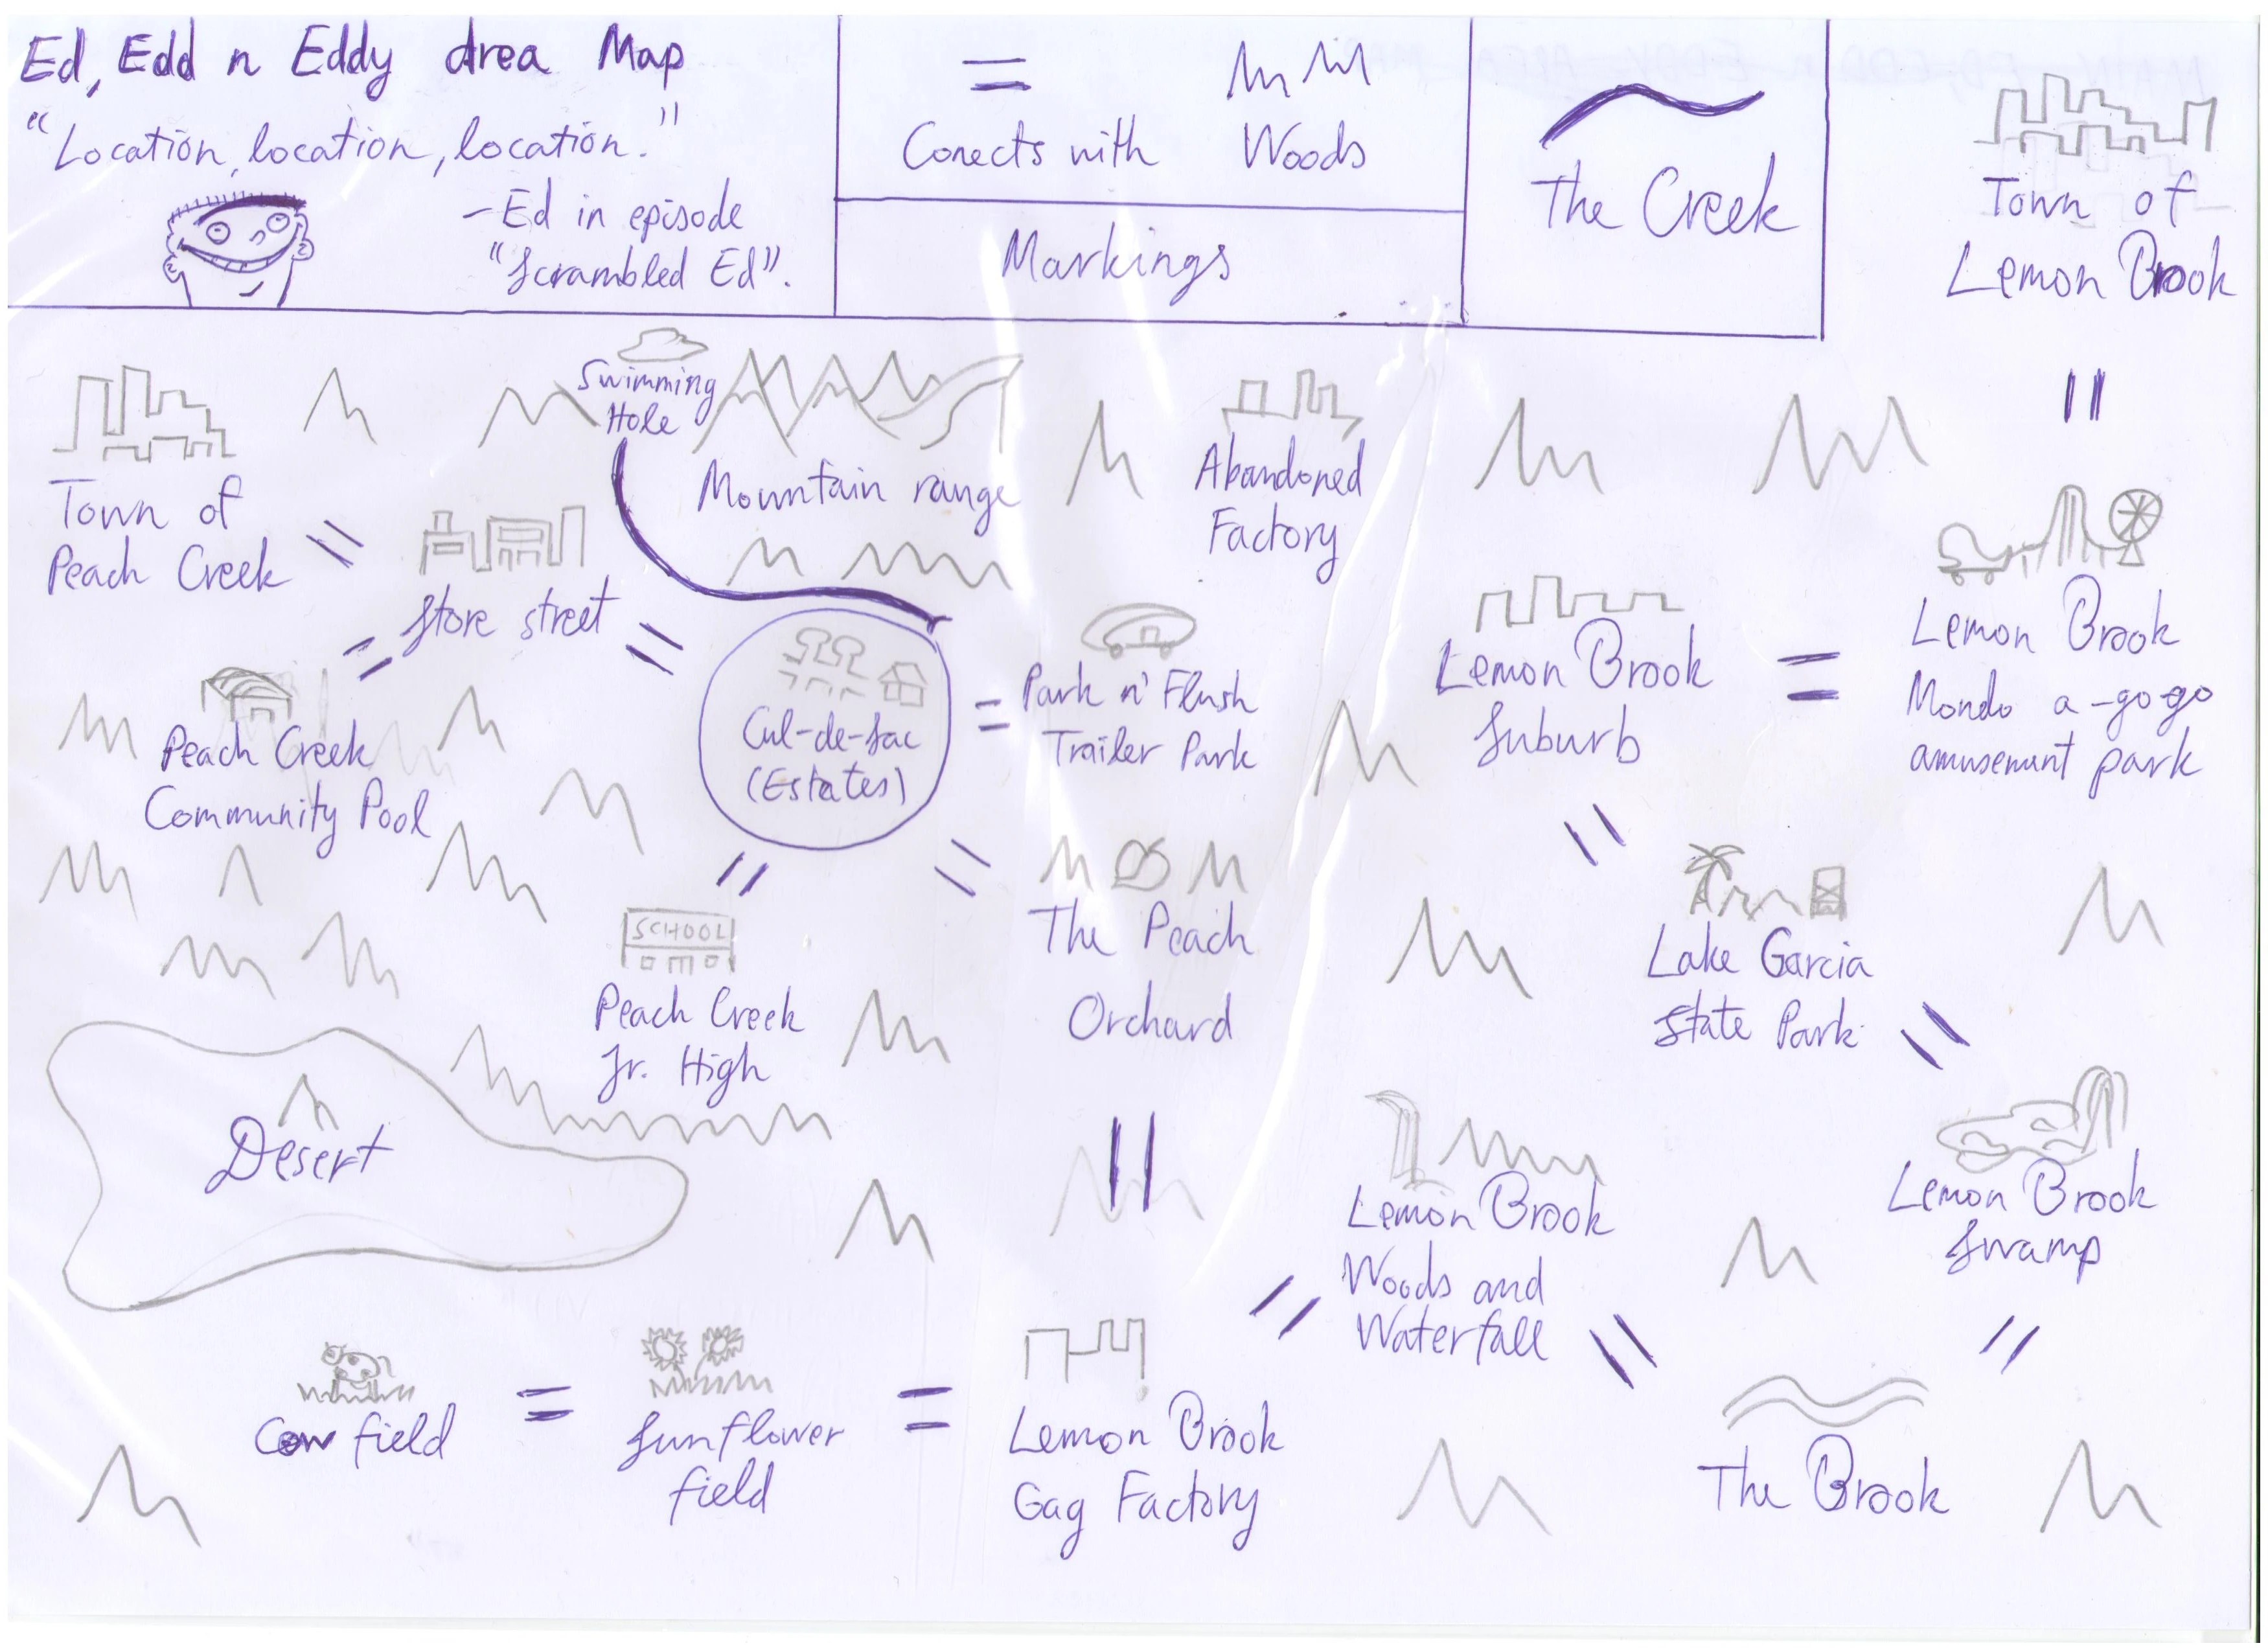 Ed, Edd n Eddy area Map
"Location, location, location."
-Ed in episode
"Scrambled Ed".
Conects with
Woods
Markings
The Creek
Town of
Lemon Brook
Swimming
Hole
Mountain range
Abandoned
Factory
Town of
Peach Creek
Store street
Peach Creek
Community Pool
Cul-de-Sac
(Estates)
Park n' Flush
Trailer Park
Lemon Brook
Suburb
Lemon Brook
Mondo a-go go
amusement park
SCHOOL
Peach Creek
Jr. High
The Peach
Orchard
Lake Garcia
State Park
Desert
Lemon Brook
Woods and
Waterfall
Lemon Brook
Swamp
Cow field
Sunflower
field
Lemon Brook
Gag Factory
The Brook